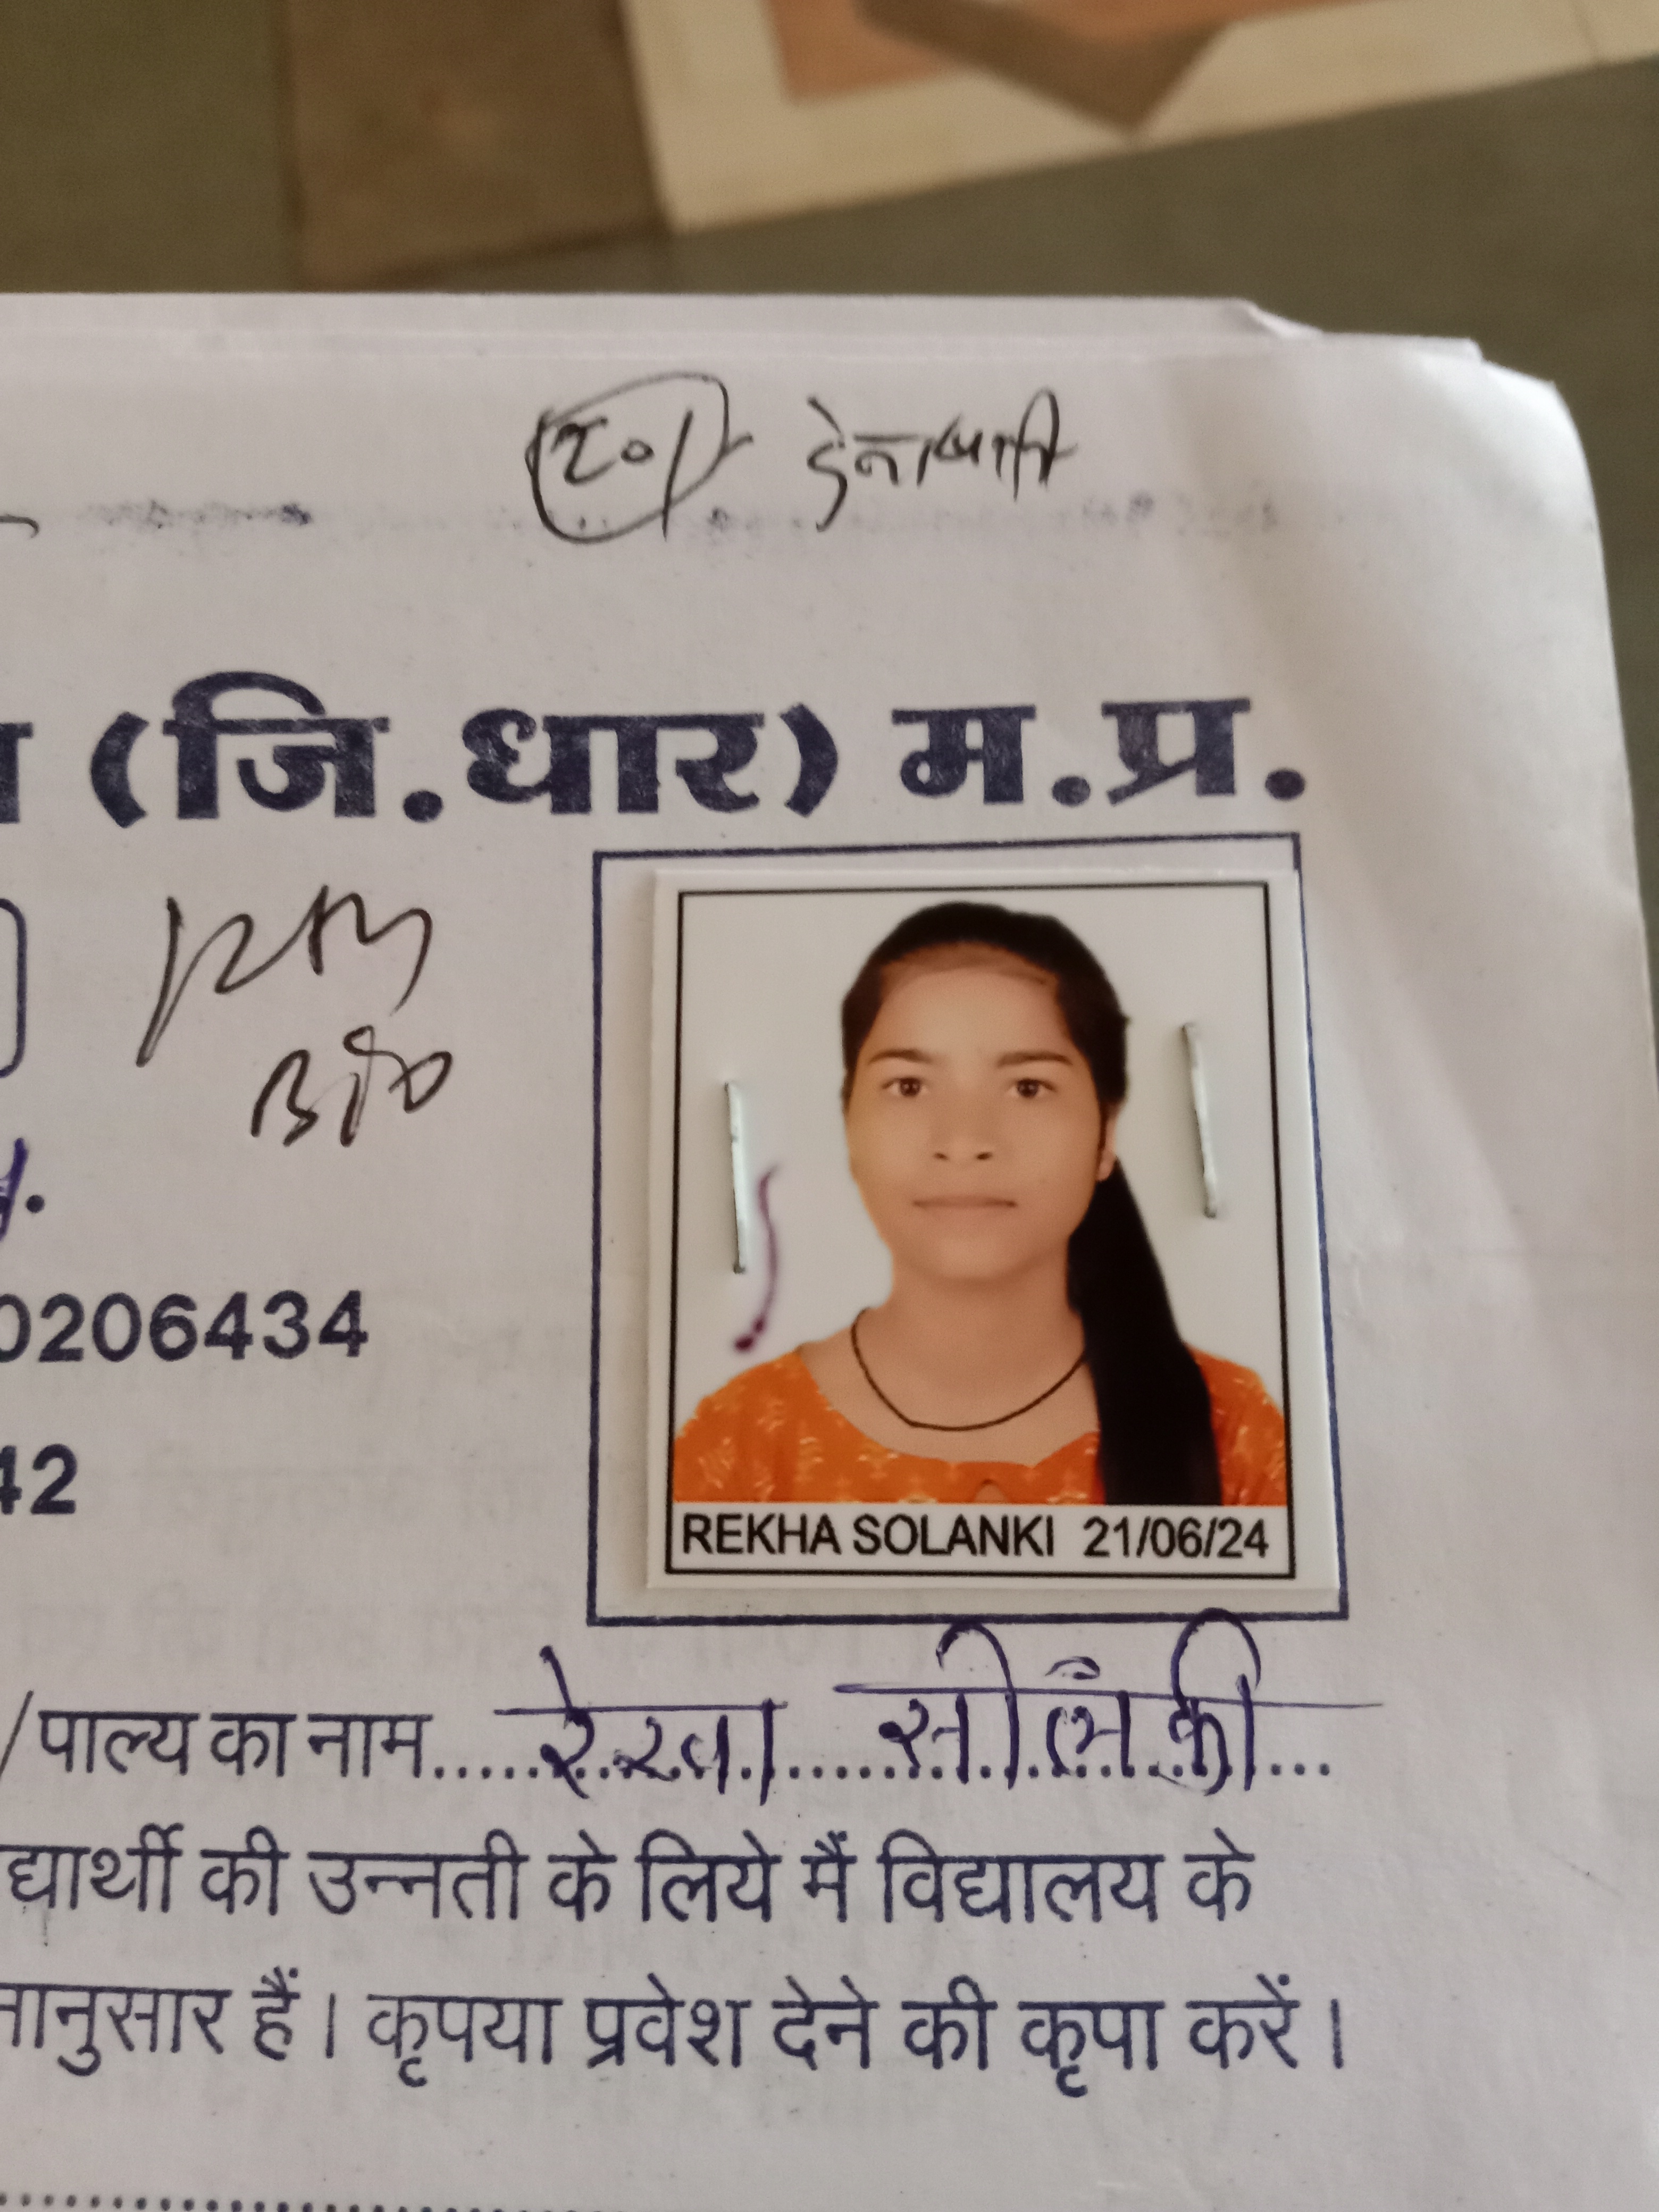 (जि.धार) म.प्र.
Bio
0206434
42
REKHA SOLANKI 21/06/24
/पाल्य का नाम..... रेखा सोलंकी ...
द्यार्थी की उन्नती के लिये मैं विद्यालय के
नानुसार हैं। कृपया प्रवेश देने की कृपा करें।